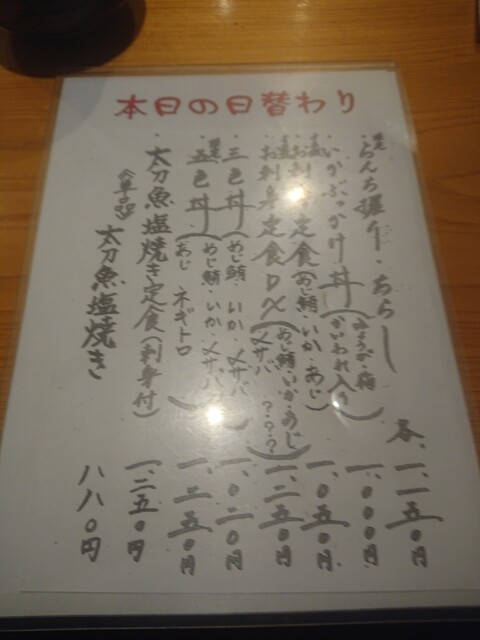 本日の日替わり
限定 らんち握り・ちらし 各、一、一五〇円
いかぶっかけ丼(みょうが・梅 かいわれ入り) 一、〇〇〇円
お刺身定食(あじ・いか・めじ鮪) 一、〇五〇円
お刺身定食DX(めじ鮪・いか・あじ メサバ ???) 一、二五〇円
三色丼(めじ鮪・いか・〆サバ) 一、〇二〇円
限定 五色丼(めじ鮪・いか・〆サバ あじ ネギトロ) 一、二五〇円
太刀魚塩焼き定食(刺身付) 一、二五〇円
(単品) 太刀魚塩焼き 八八〇円